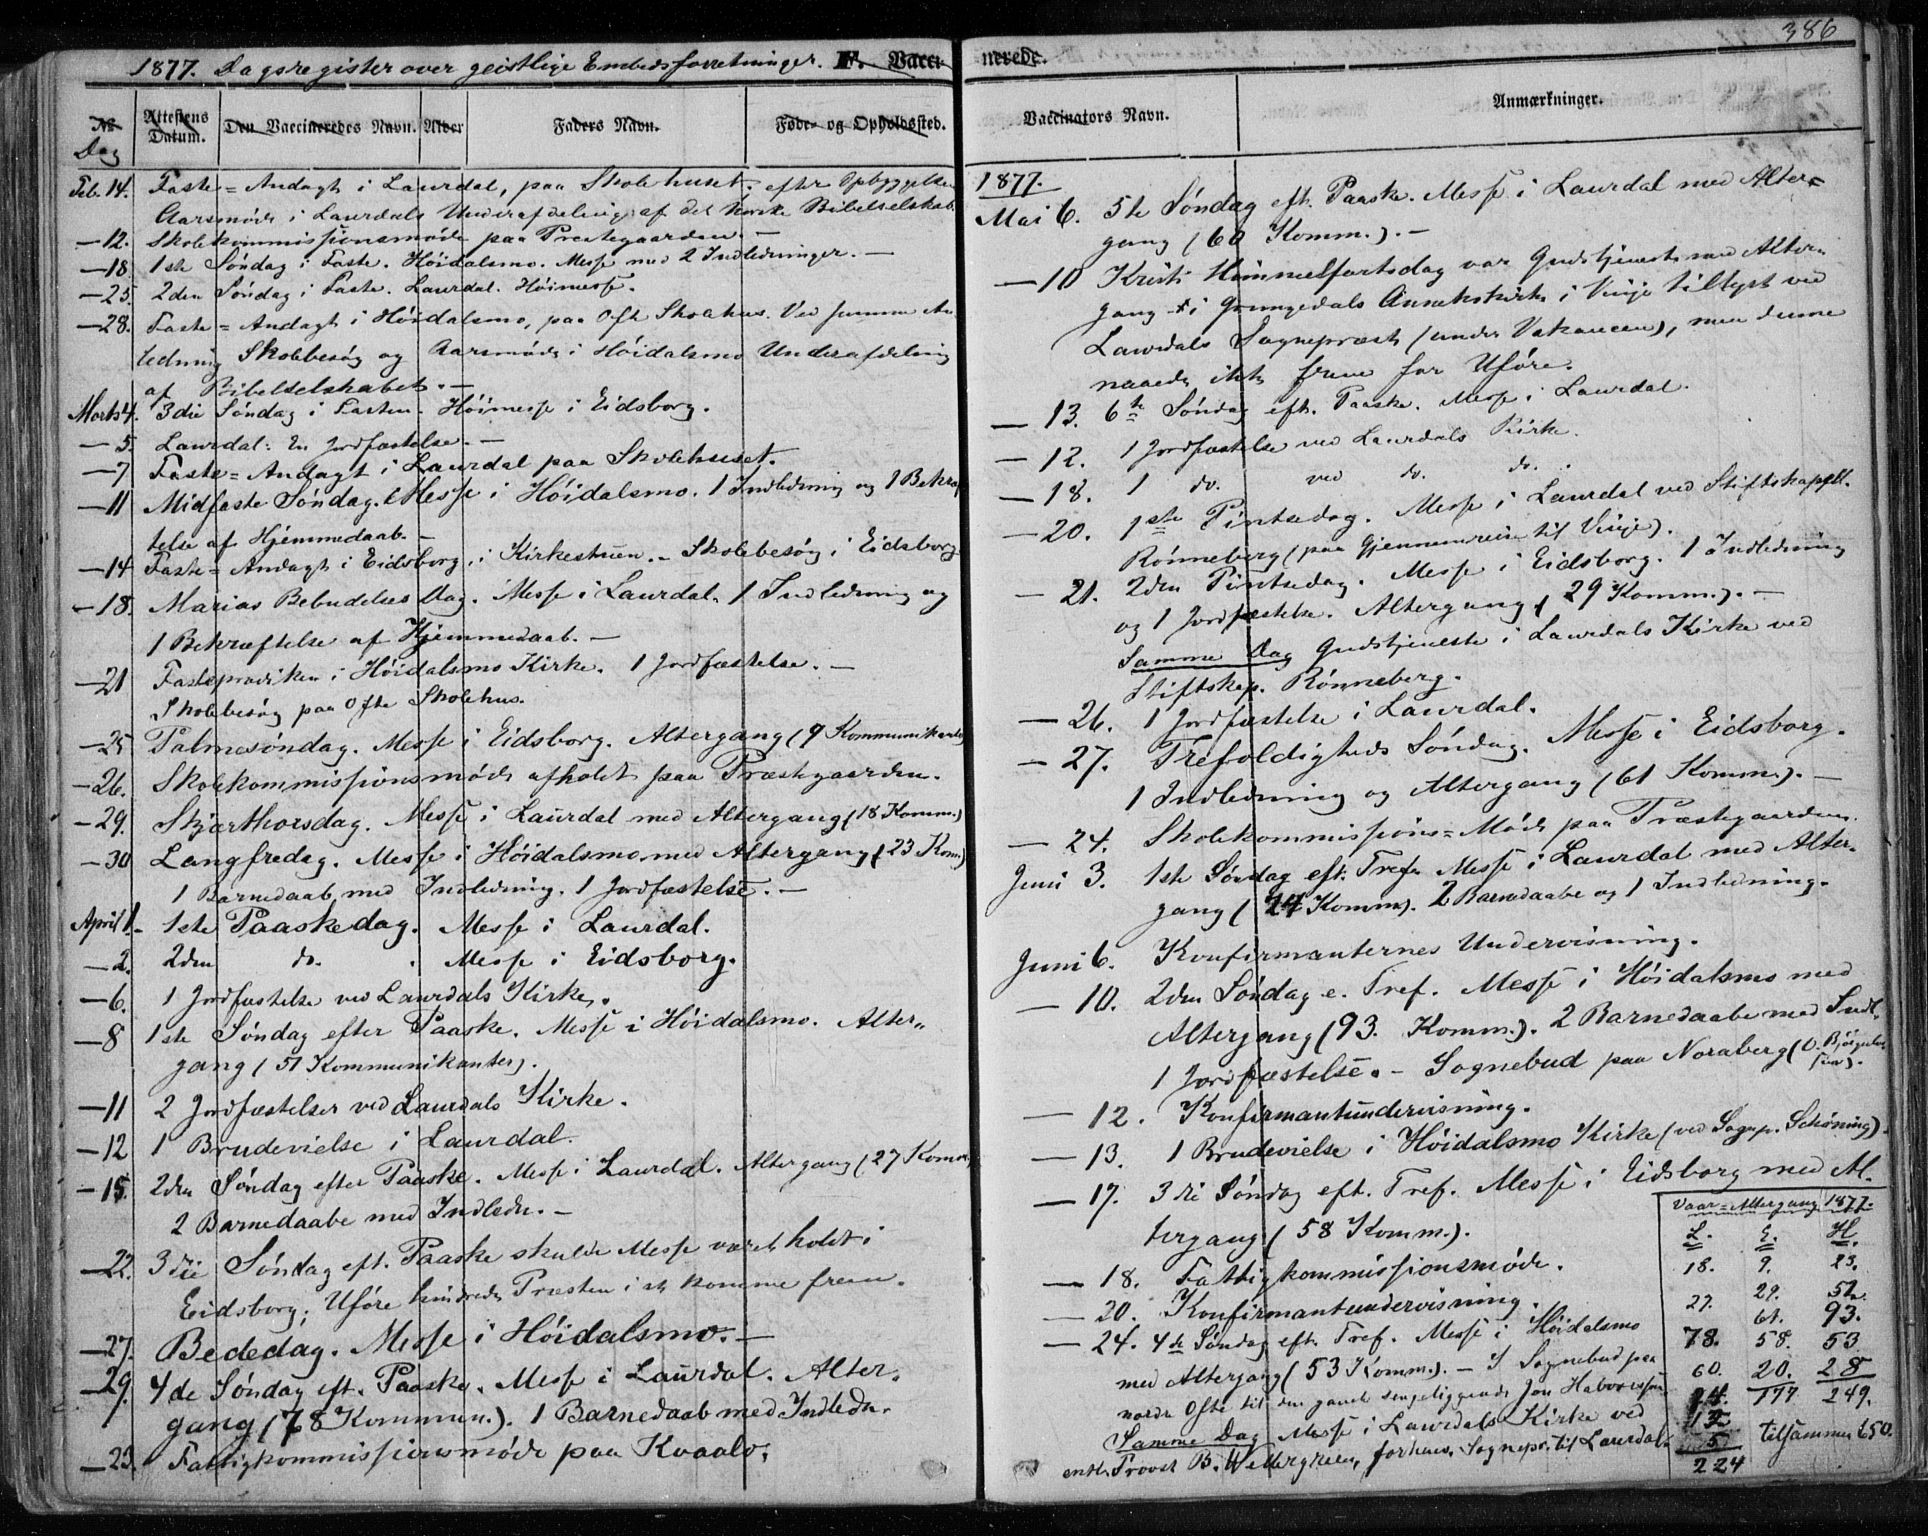 386
1877. Dagsregister over geistlige Embedsforretninger. F. Vacci-
nerede.
No
Dag
Attestens Datum.
Den Vaccineredes Navn.
Alder
Faders Navn.
Føde- og Opholdssted.
Feb. 14. Faste=Andagt i Laurdal, paa Skolehuset; efter Opbyggelsen
Aarsmøde i Laurdals Underafdeling af det norske Bibelselskab.
—12. Skolekommissionsmøde paa Prestegaarden. —
—18. 1ste Søndag i Faste. Høidalsmo. Messe med 2 Indledninger. —
—25. 2den Søndag i Faste. Laurdal. Høimesse.
—28. Faste=Andagt i Høidalsmo, paa Ofte Skolehus. Ved samme An
ledning Skolebesøg og Aarsmøde i Høidalsmo Underafdeling
af Bibelselskabet. —
Marts 4. 3die Søndag i Fasten. Høimesse i Eidsborg.
— 5. Laurdal: En Jordfæstelse. —
— 7 Faste=Andagt i Laurdal paa Skolehuset.
— 11 Midfaste Søndag. Messe i Høidalsmo. 1 Indledning og 1 Bekræf
telse af Hjemmedaab. —
—14 Faste=Andagt i Eidsborg, i Kirkestuen. – Skolebesøg i Eidsborg
—18. Marias Bebudelses Dag. Messe i Laurdal. 1 Indledning og
1 Bekræftelse af Hjemmedaab. —
—21 Fasteprædiken i Høidalsmo Kirke. 1 Jordfæstelse. —
Skolebesøg paa Ofte Skolehus.
—25 Palmesøndag. Messe i Eidsborg. Altergang (9 Kommunikanter)
—26. Skolekommissionsmøde afholdt paa Præstegaarden.
—29. Skjærthorsdag. Messe i Laurdal med Altergang (18 Komm.)
—30 Langfredag. Messe i Høidalsmo med Altergang (23 Kom)
1 Barnedaab med Indledning. 1 Jordfæstelse. —
April 1. 1ste Paaskedag. Messe i Laurdal.
—2. 2den do. Messe i Eidsborg.
—6. 1 Jordfæstelse ved Laurdals Kirke.
—8 1ste Søndag efter Paaske. Messe i Høidalsmo. Alter-
gang (51 Kommunikanter).
—11 2 Jordfæstelser ved Laurdals Kirke.
—12 1 Brudevielse i Laurdal.
—15. 2den Søndag efter Paaske. Messe i Laurdal. Altergang (27 Komm.
2 Barnedaabe med Indledn. —
—22. 3die Søndag eft. Paaske skulde Messe været holdt i
Eidsborg; Uføre hindrede Præsten i at komme frem.
—27. Bededag. Messe i Høidalsmo. —
—29. 4de Søndag eft. Paaske. Messe i Laurdal. Alter-
gang (78 Kommun.). 1 Barnedaab med Indledn.
—23. Fattigkommissionsmøde paa Kvaalo.
Vaccinators Navn.
Anmærkninger.
1877.
Mai 6. 5te Søndag eft. Paaske. Messe i Laurdal med Alter-
gang (60 Komm.). —
—10 Kristi Himmelfartsdag var Gudstjeneste med Alter-
gang i Grungedals Annekskirke i Vinje tillyst ved
Laurdals Sogneprest (under Vakancen), men denne
naaede ikke frem for Uføre.
— 13. 6te Søndag eft. Paaske. Messe i Laurdal.
— 12. 1 Jordfæstelse ved Laurdals Kirke.
— 18. 1 do. ved do. do.
— 20. 1ste Pintsedag. Messe i Laurdal ved Stiftskapell.
Rønneberg (paa Gjennemreise til Vinje).
— 21. 2den Pintsedag. Messe i Eidsborg. 1 Indledning
og 1 Jordfæstelse. Altergang (29 Komm.). —
Samme Dag Gudstjeneste i Laurdals Kirke ved
Stiftskap. Rønneberg.
— 26. 1 Jordfæstelse i Laurdal.
— 27. Trefoldigheds Søndag. Messe i Eidsborg.
1 Indledning og Altergang (61 Komm.). —
— 24. Skolekommissions=Møde paa Præstegaarden.
Juni 3. 1ste Søndag eft. Tref. Messe i Laurdal med Alter-
gang (24 Komm). 2 Barnedaabe og 1 Indledning.
Juni 6. Konfirmanternes Undervisning.
— 10. 2den Søndag e. Tref. Messe i Høidalsmo med
Altergang (93. Komm.). 2 Barnedaabe med Indl.
1 Jordfæstelse. – Sognebud paa Noraberg (O. Bjørguls
søn).
— 12. Konfirmantundervisning.
— 13. 1 Brudevielse i Høidalsmo Kirke (ved Sognep. Schøning).
— 17. 3die Søndag eft. Tref. Messe i Eidsborg med Al-
tergang (58 Komm.).
— 18. Fattigkommissionsmøde.
— 20. Konfirmantundervisning.
— 24. 4de Søndag eft. Tref. Messe i Høidalsmo
med Altergang (53 Komm.). – I Sognebud paa
nordre Ofte til den gamle sengeliggende Jon Halvorssøn
Samme Dag Messe i Laurdals Kirke ved
Provst B. Wettergreen, forhenv. Sognepr. til Laurdal.
Vaar=Altergang 1877.
L. E. H.
18. 9. 23.
27. 29. 51.
78. 61. 93.
60. 58. 53
24. 20. 28
12 177 249.
5
224 tilsammen 650.